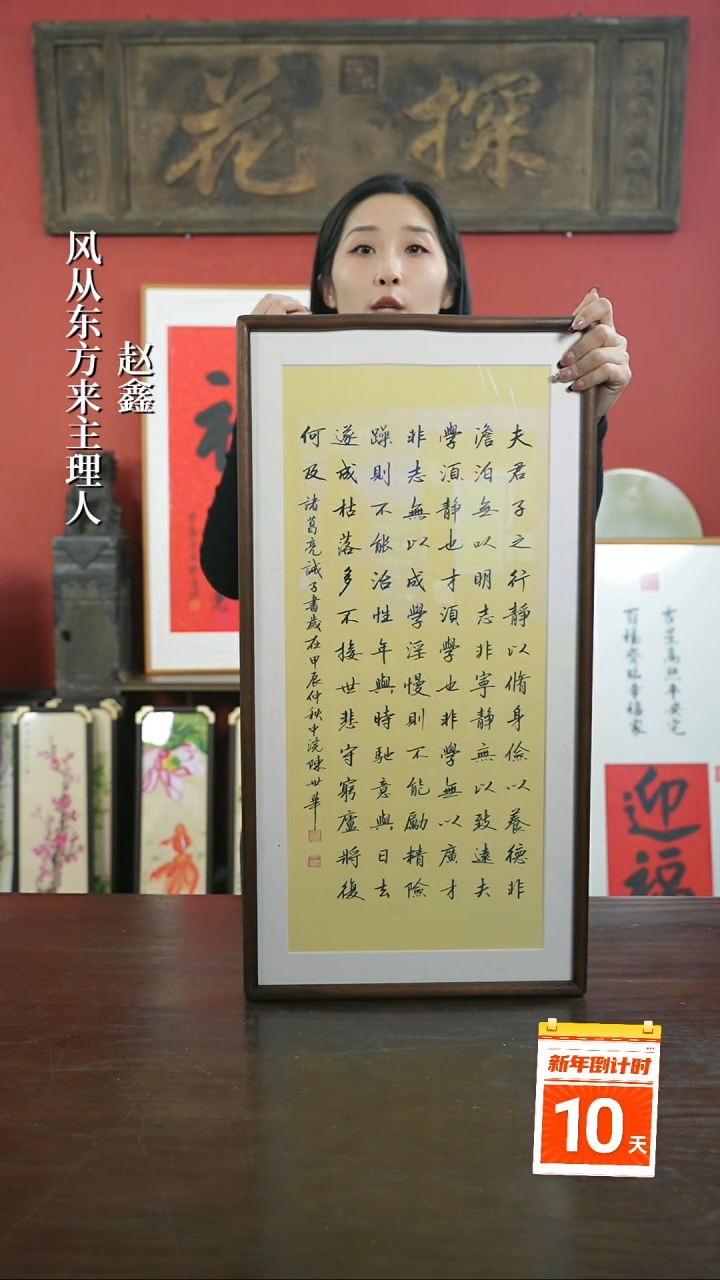 探花
风从东方来主理人
赵鑫
夫君子之行靜以脩身儉以養德非
澹泊無以明志非寧靜無以致遠夫
學須靜也才須學也非學無以廣才
非志無以成學淫慢則不能勵精險
躁則不能治性年與時馳意與日去
遂成枯落多不接世悲守窮廬將復
何及 諸葛亮誡子書歲在甲辰仲秋中浣陳世華
吉星高照平安宅
百福齊臨幸福家
迎福
新年倒计时
10天